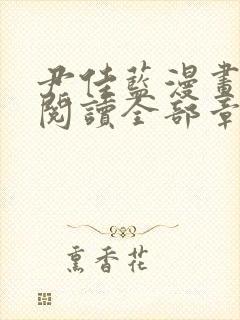 尹佳藍漫畫
閱讀全部章
熏香花